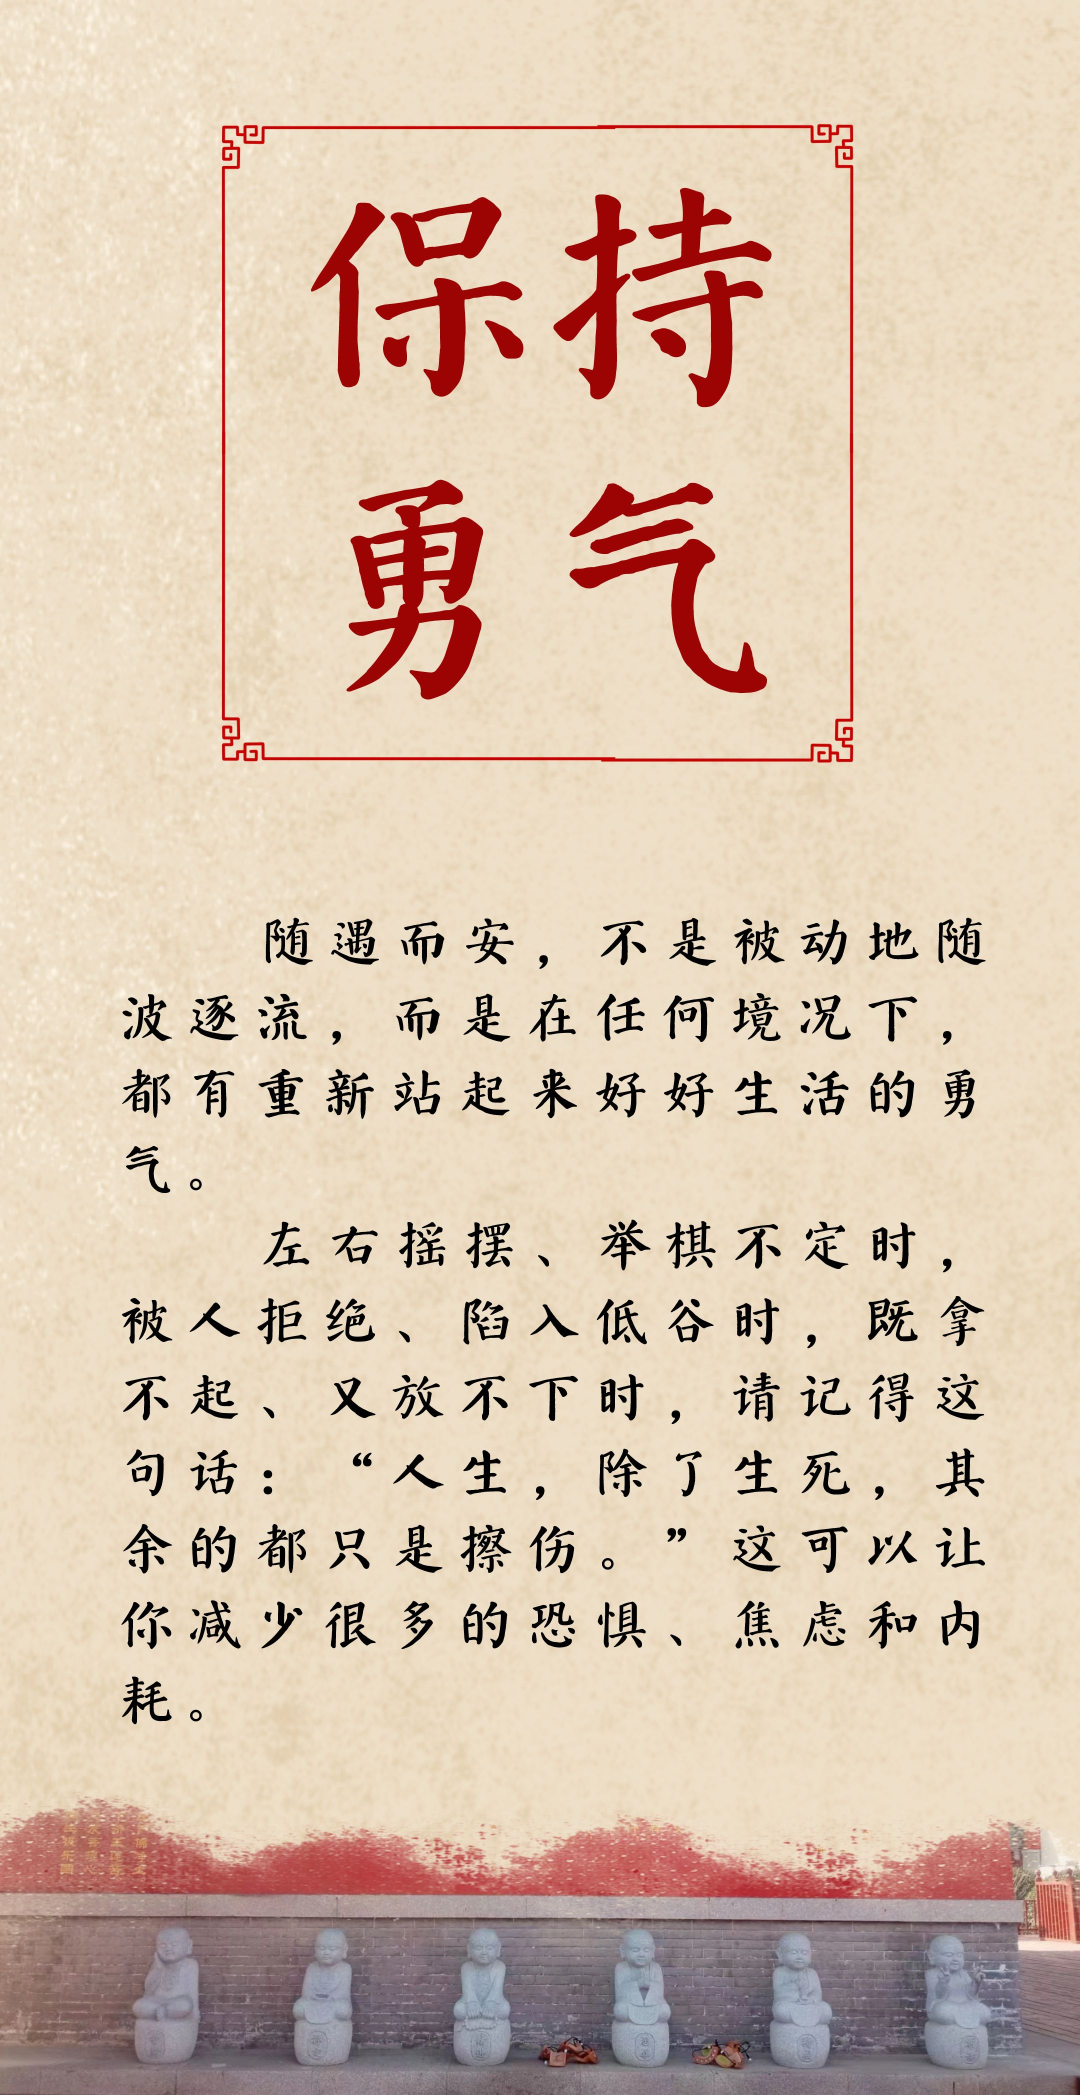 保持
勇气
随遇而安，不是被动地随
波逐流，而是在任何境况下，
都有重新站起来好好生活的勇
气。
左右摇摆、举棋不定时，
被人拒绝、陷入低谷时，既拿
不起、又放不下时，请记得这
句话：“人生，除了生死，其
余的都只是擦伤。”这可以让
你减少很多的恐惧、焦虑和内
耗。